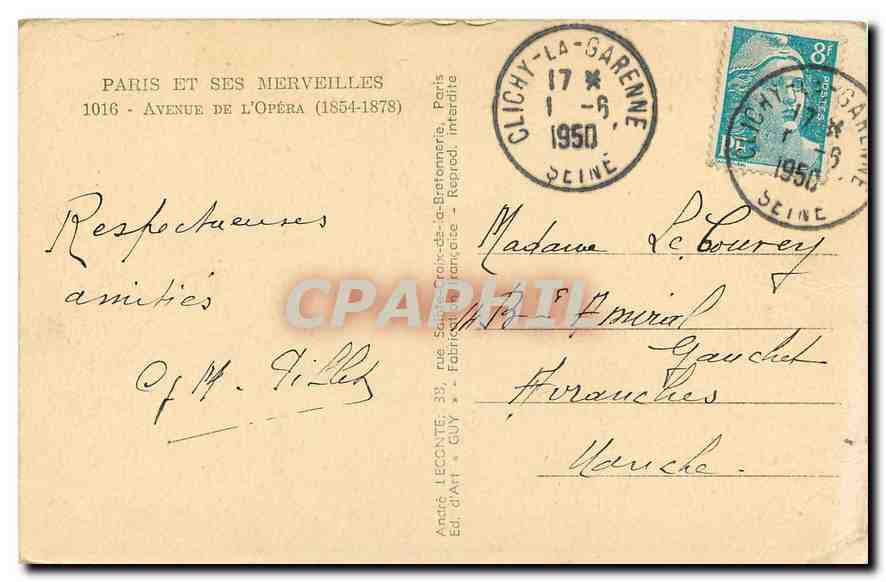 PARIS ET SES MERVEILLES
1016 - AVENUE DE L'OPÉRA (1854-1878)
Respectueuses
amitiés
André LECONTE, 38, rue Sainte-Croix-de-la-Bretonnerie, Paris
Ed. d'Art « GUY » - Fabrication Française - Reprod. interdite
CLICHY-LA-GARENNE
17 *
1 -6
1950
SEINE
8F
POSTES
CLICHY-LA-GARENNE
17 *
1 -6
1950
SEINE
Madame Le
Bd Amiral
Gauchet
Avranches
Manche.
CPAPHIL